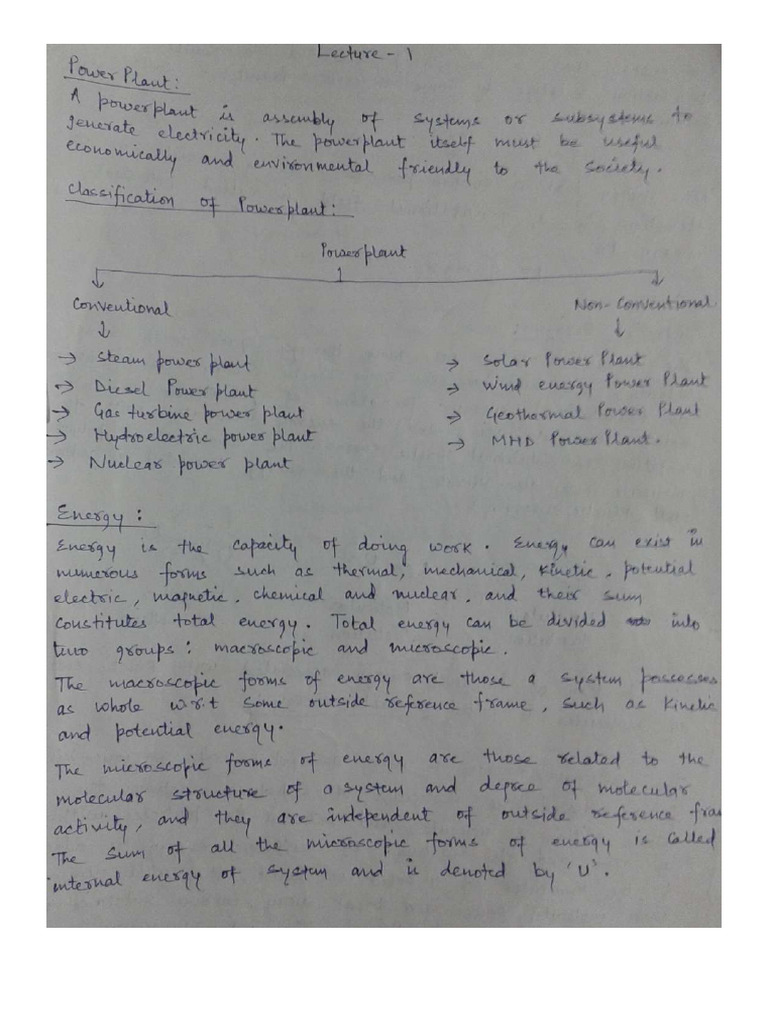 Lecture - 1
Power Plant:
A powerplant is assembly of systems or subsystems to
generate electricity. The powerplant itself must be useful
economically and environmental friendly to the society.
Classification of Powerplant:
Powerplant
Conventional Non-Conventional
→ Steam power plant → Solar Power Plant
→ Diesel Power plant → Wind energy Power Plant
→ Gas turbine power plant → Geothormal Power Plant
→ Hydroelectric power plant → MHD Power Plant.
→ Nuclear power plant
Energy:
Energy is the capacity of doing work. Energy can exist in
numerous forms such as thermal, mechanical, kinetic, potential
electric, magnetic, chemical and nuclear, and their sum
constitutes total energy. Total energy can be divided into
two groups: macroscopic and microscopic.
The macroscopic forms of energy are those a system possesses
as whole w.r.t some outside reference frame, such as kinetic
and potential energy.
The microscopic forms of energy are those related to the
molecular structure of a system and degree of molecular
activity, and they are independent of outside reference fra
The sum of all the microscopic forms of energy is called
internal energy of system and is denoted by 'U'.